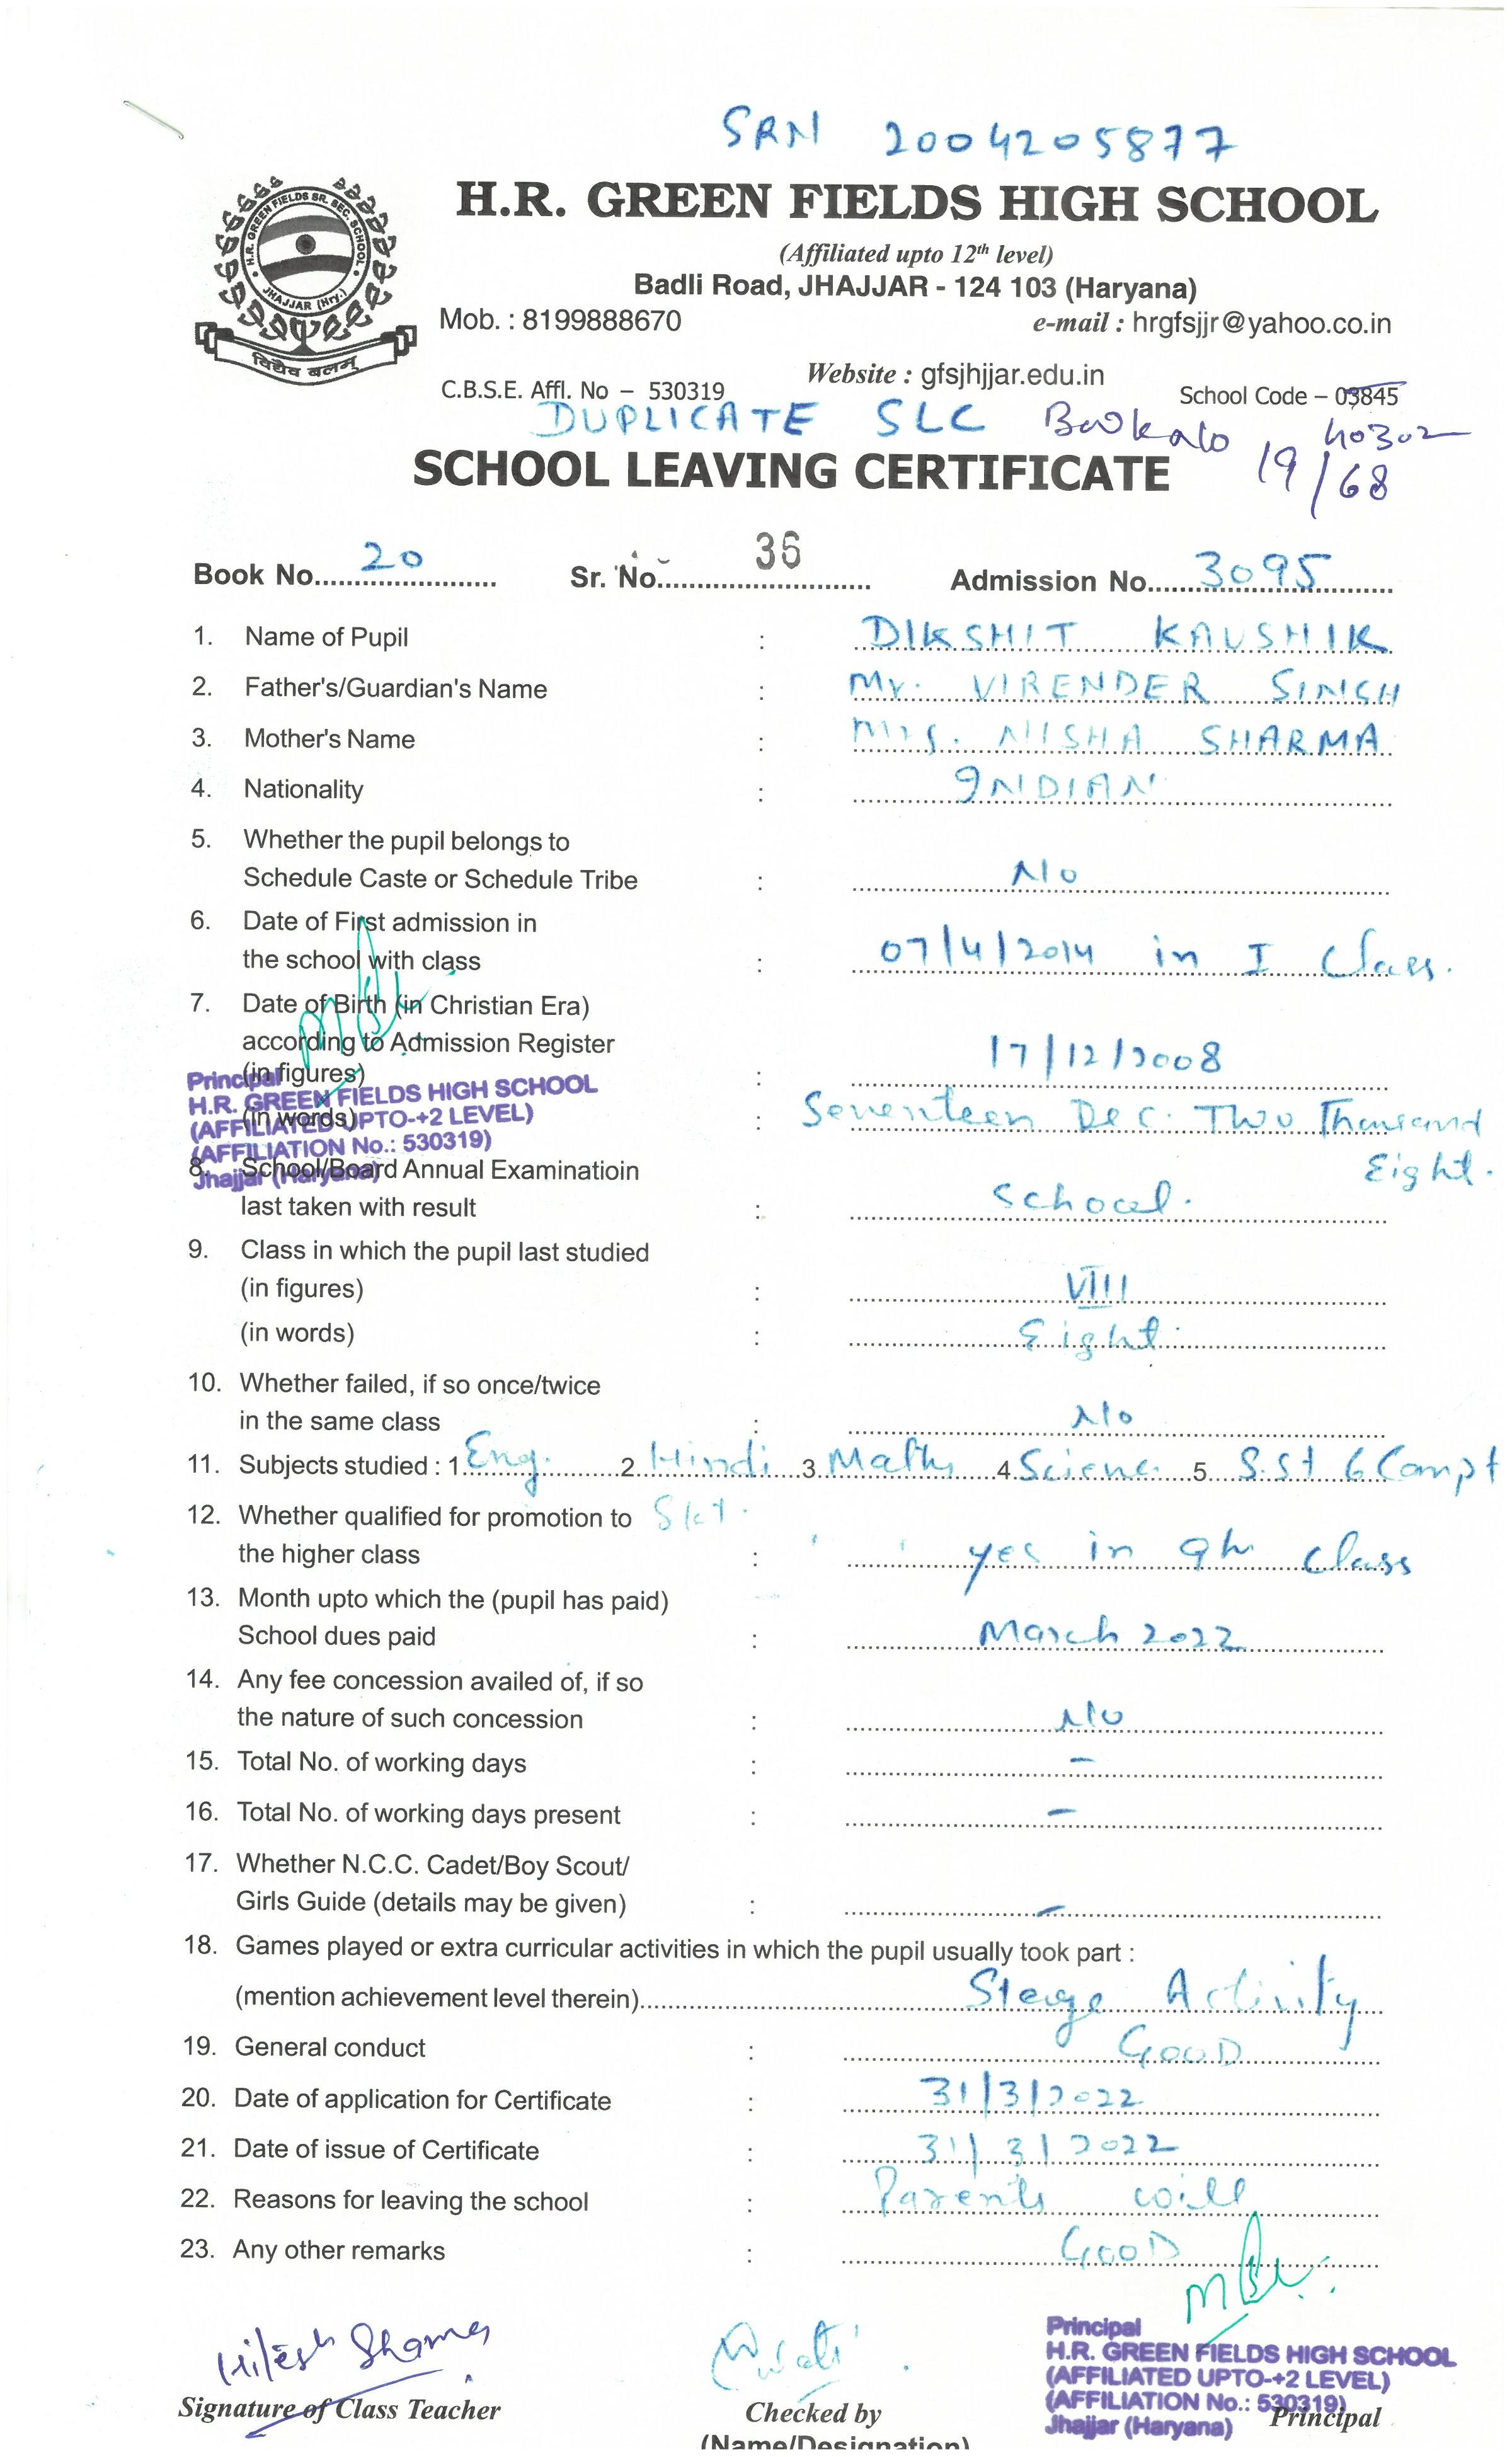 SRN 2004205877
H.R. GREEN FIELDS SR. SEC. SCHOOL
JHAJJAR (Hry.)
विद्यैव बलम्
H.R. GREEN FIELDS HIGH SCHOOL
(Affiliated upto 12th level)
Badli Road, JHAJJAR - 124 103 (Haryana)
Mob. : 8199888670 e-mail : hrgfsjjr@yahoo.co.in
Website : gfsjhjjar.edu.in
C.B.S.E. Affl. No – 530319 School Code – 03845
DUPLICATE SLC Book No 40302
SCHOOL LEAVING CERTIFICATE 19/68
Book No. 20 Sr. No. 36 Admission No. 3095
1. Name of Pupil : DIKSHIT KAUSHIK
2. Father's/Guardian's Name : Mr. VIRENDER SINGH
3. Mother's Name : Mrs. NISHA SHARMA
4. Nationality : INDIAN
5. Whether the pupil belongs to
Schedule Caste or Schedule Tribe : No
6. Date of First admission in
the school with class : 07/4/2014 in I Class.
7. Date of Birth (in Christian Era)
according to Admission Register
(in figures) : 17/12/2008
(in words) : Seventeen Dec. Two Thousand
Eight.
Principal
H.R. GREEN FIELDS HIGH SCHOOL
(AFFILIATED UPTO-+2 LEVEL)
(AFFILIATION No.: 530319)
Jhajjar (Haryana)
8. School/Board Annual Examinatioin
last taken with result : School.
9. Class in which the pupil last studied
(in figures) : VIII
(in words) : Eight
10. Whether failed, if so once/twice
in the same class : No
11. Subjects studied : 1. Eng. 2. Hindi 3. Maths 4 Scienc. 5 S.St 6 Compt
12. Whether qualified for promotion to Skt.
the higher class : yes in 9th Class
13. Month upto which the (pupil has paid)
School dues paid : March 2022
14. Any fee concession availed of, if so
the nature of such concession : No
15. Total No. of working days : –
16. Total No. of working days present : –
17. Whether N.C.C. Cadet/Boy Scout/
Girls Guide (details may be given) : –
18. Games played or extra curricular activities in which the pupil usually took part :
(mention achievement level therein) Stage Activity
19. General conduct : GOOD
20. Date of application for Certificate : 31/3/2022
21. Date of issue of Certificate : 31/3/2022
22. Reasons for leaving the school : Parents will
23. Any other remarks : GOOD
Principal
H.R. GREEN FIELDS HIGH SCHOOL
(AFFILIATED UPTO-+2 LEVEL)
(AFFILIATION No.: 530319)
Jhajjar (Haryana)
Signature of Class Teacher Checked by Principal
(Name/Designation)